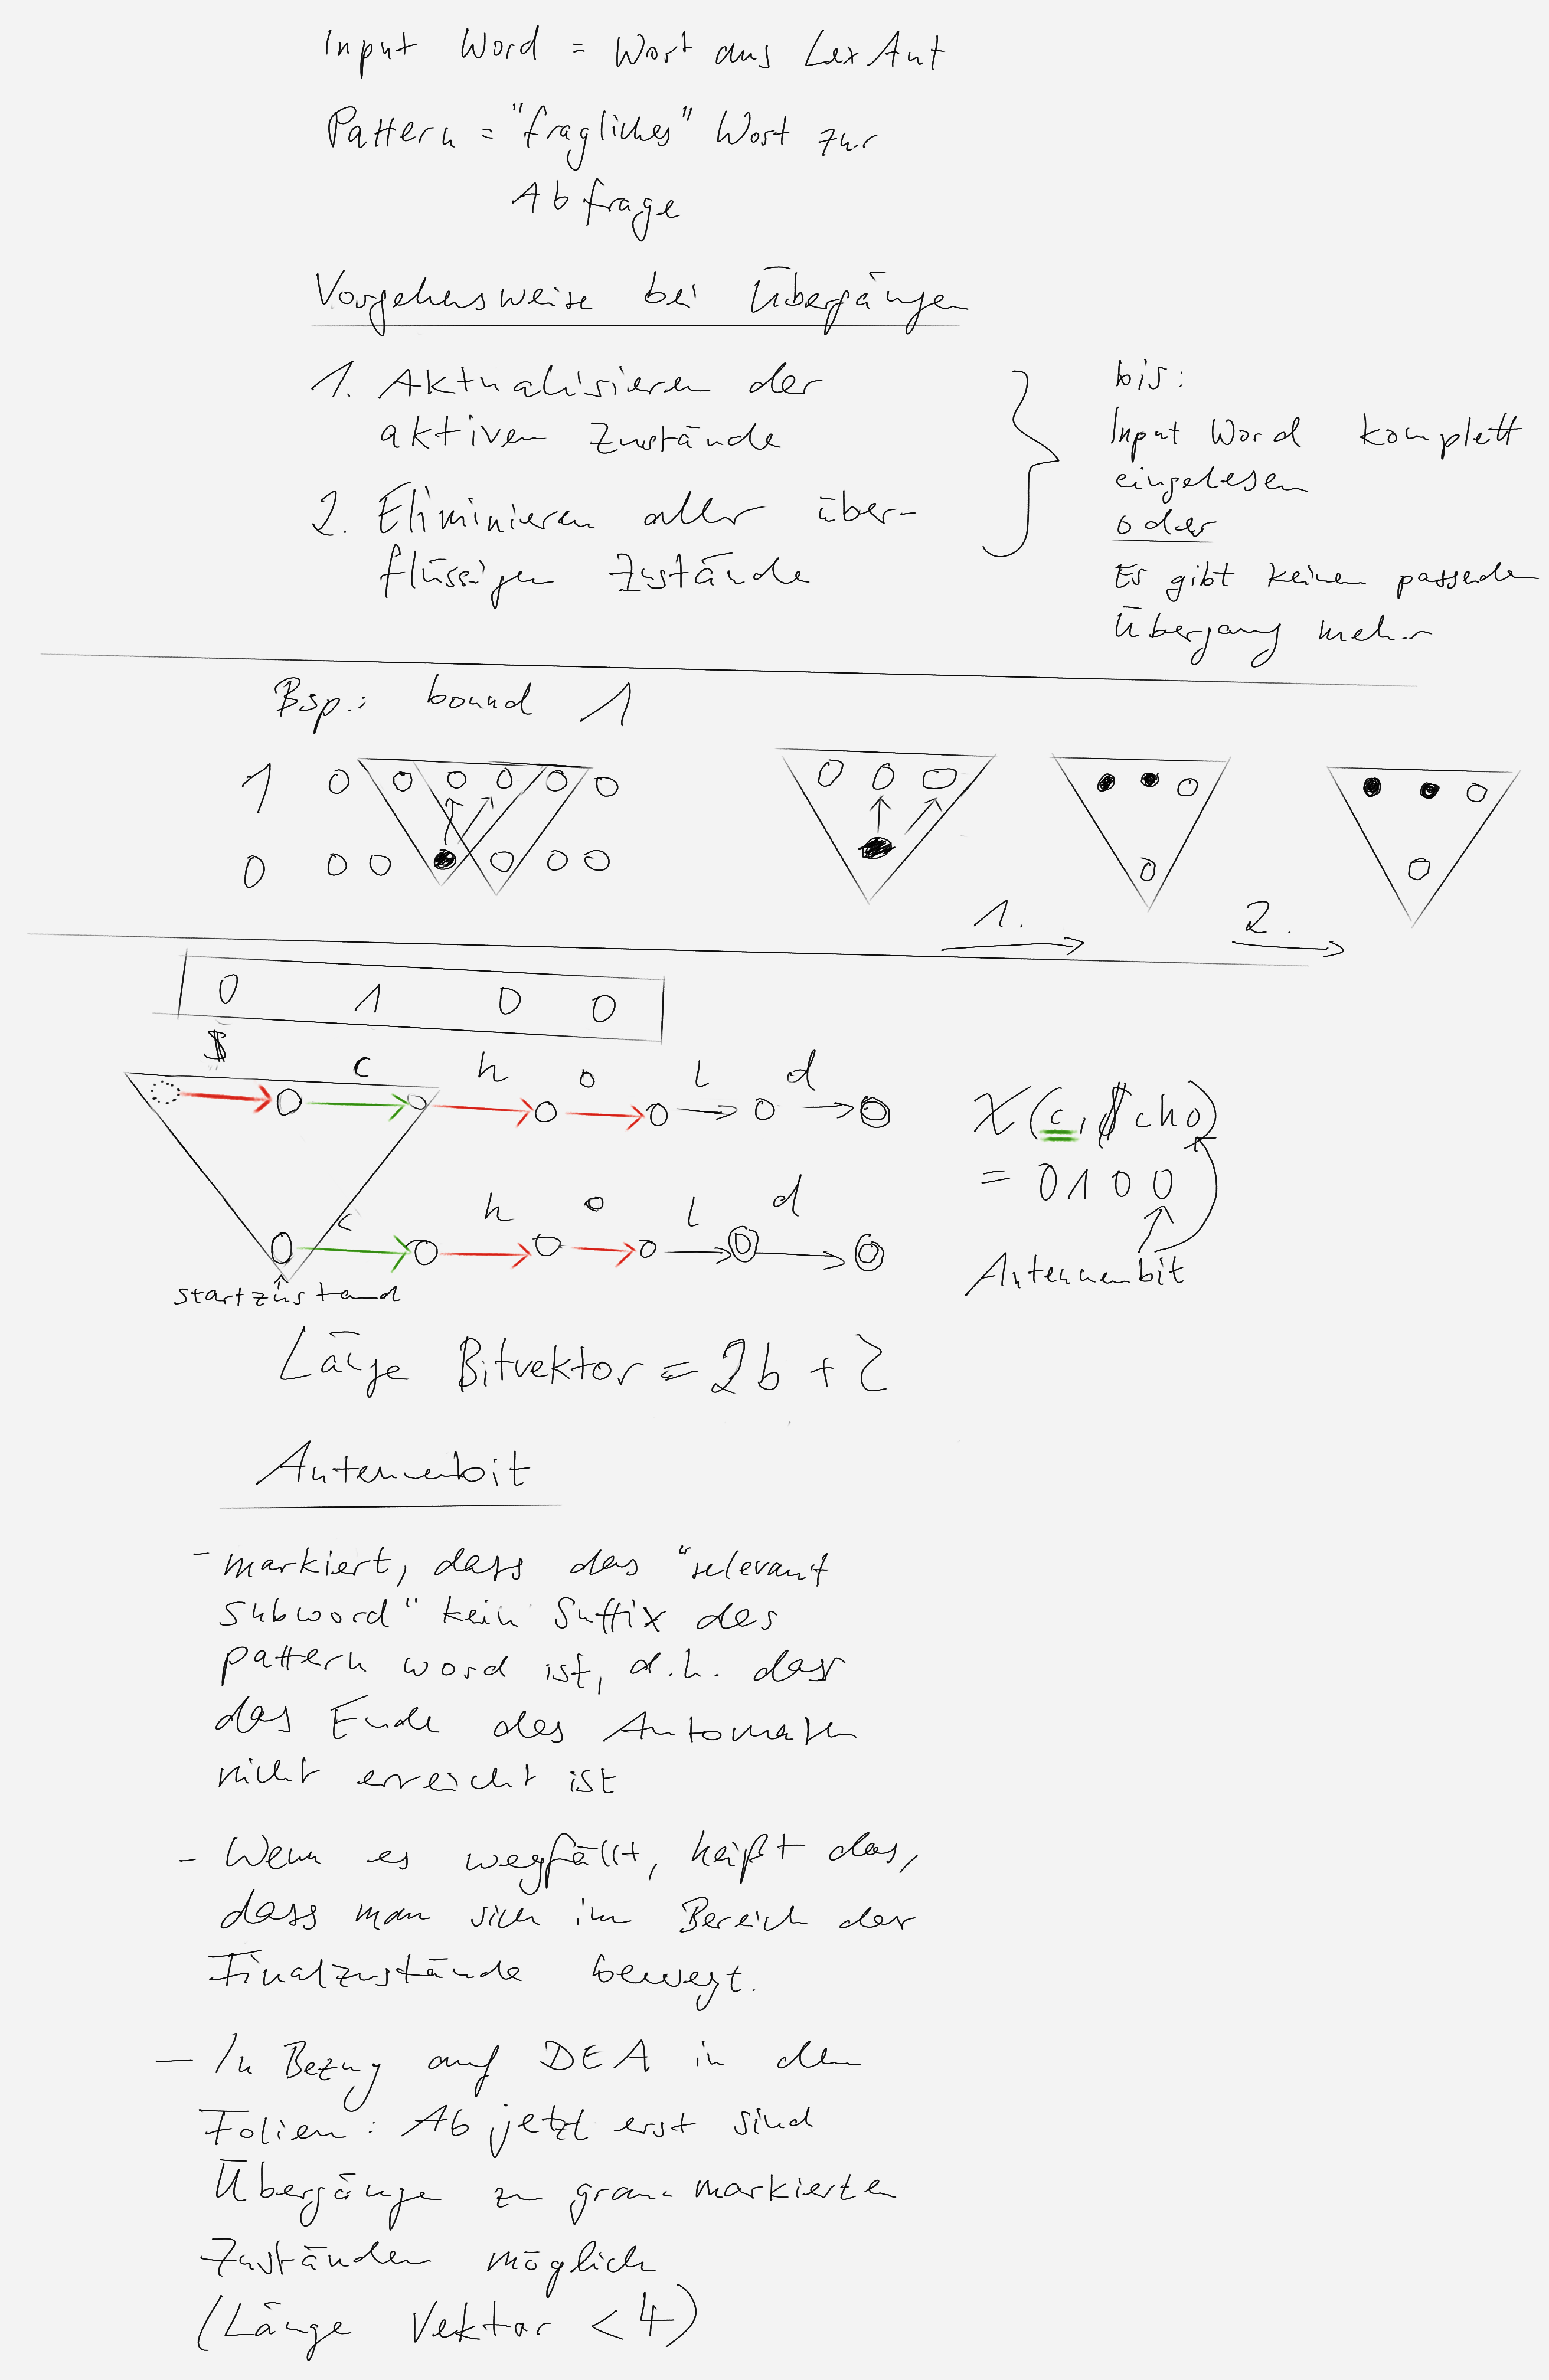 Input Word = Wort aus LexAut
Pattern = "fragliches" Wort zur
Abfrage
Vorgehensweise bei Übergängen
1. Aktualisieren der
aktiven Zustände
2. Eliminieren aller über-
flüssigen Zustände
bis:
Input Word komplett
eingelesen
oder
Es gibt keinen passenden
Übergang mehr
Bsp.: bound 1
1
0
1.
2.
0 1 0 0
$ c h o l d
χ(c,$cho)
= 0100
Antennenbit
c h o l d
startzustand
Länge Bitvektor = 2b + 2
Antennenbit
- markiert, dass das "relevant
subword" kein Suffix des
pattern word ist, d.h. dass
das Ende des Automaten
nicht erreicht ist
- Wenn es wegfällt, heißt das,
dass man sich im Bereich der
Finalzustände bewegt.
- In Bezug auf DEA in den
Folien: Ab jetzt erst sind
Übergänge zu grau markierten
Zuständen möglich
(Länge Vektor < 4)